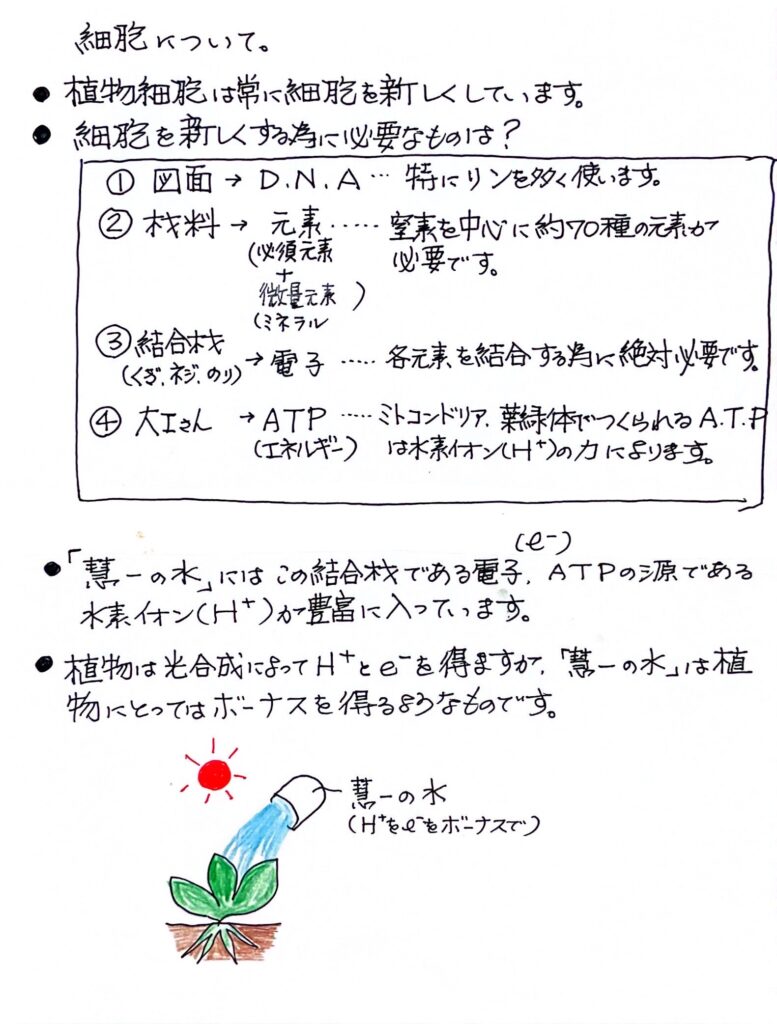 細胞について。
● 植物細胞は常に細胞を新しくしています。
● 細胞を新しくする為に必要なものは？
① 図面 → D.N.A … 特にリンを多く使います。
② 材料 → 元素 ‥‥‥ 窒素を中心に約70種の元素が
(必須元素 必要です。
+
微量元素 )
(ミネラル
③ 結合材 → 電子 ‥‥‥ 各元素を結合する為に絶対必要です。
(くぎ、ネジ、のり)
④ 大工さん → ATP ‥‥‥ ミトコンドリア、葉緑体でつくられるA.T.P
(エネルギー) は水素イオン(H⁺)の力によります。
(e-)
● 「慧一の水」にはこの結合材である電子、ATPの源である
水素イオン(H⁺)が豊富に入っています。
● 植物は光合成によってH⁺とe⁻を得ますが、「慧一の水」は植
物にとってはボーナスを得るようなものです。
慧一の水
(H⁺をe⁻をボーナスで)